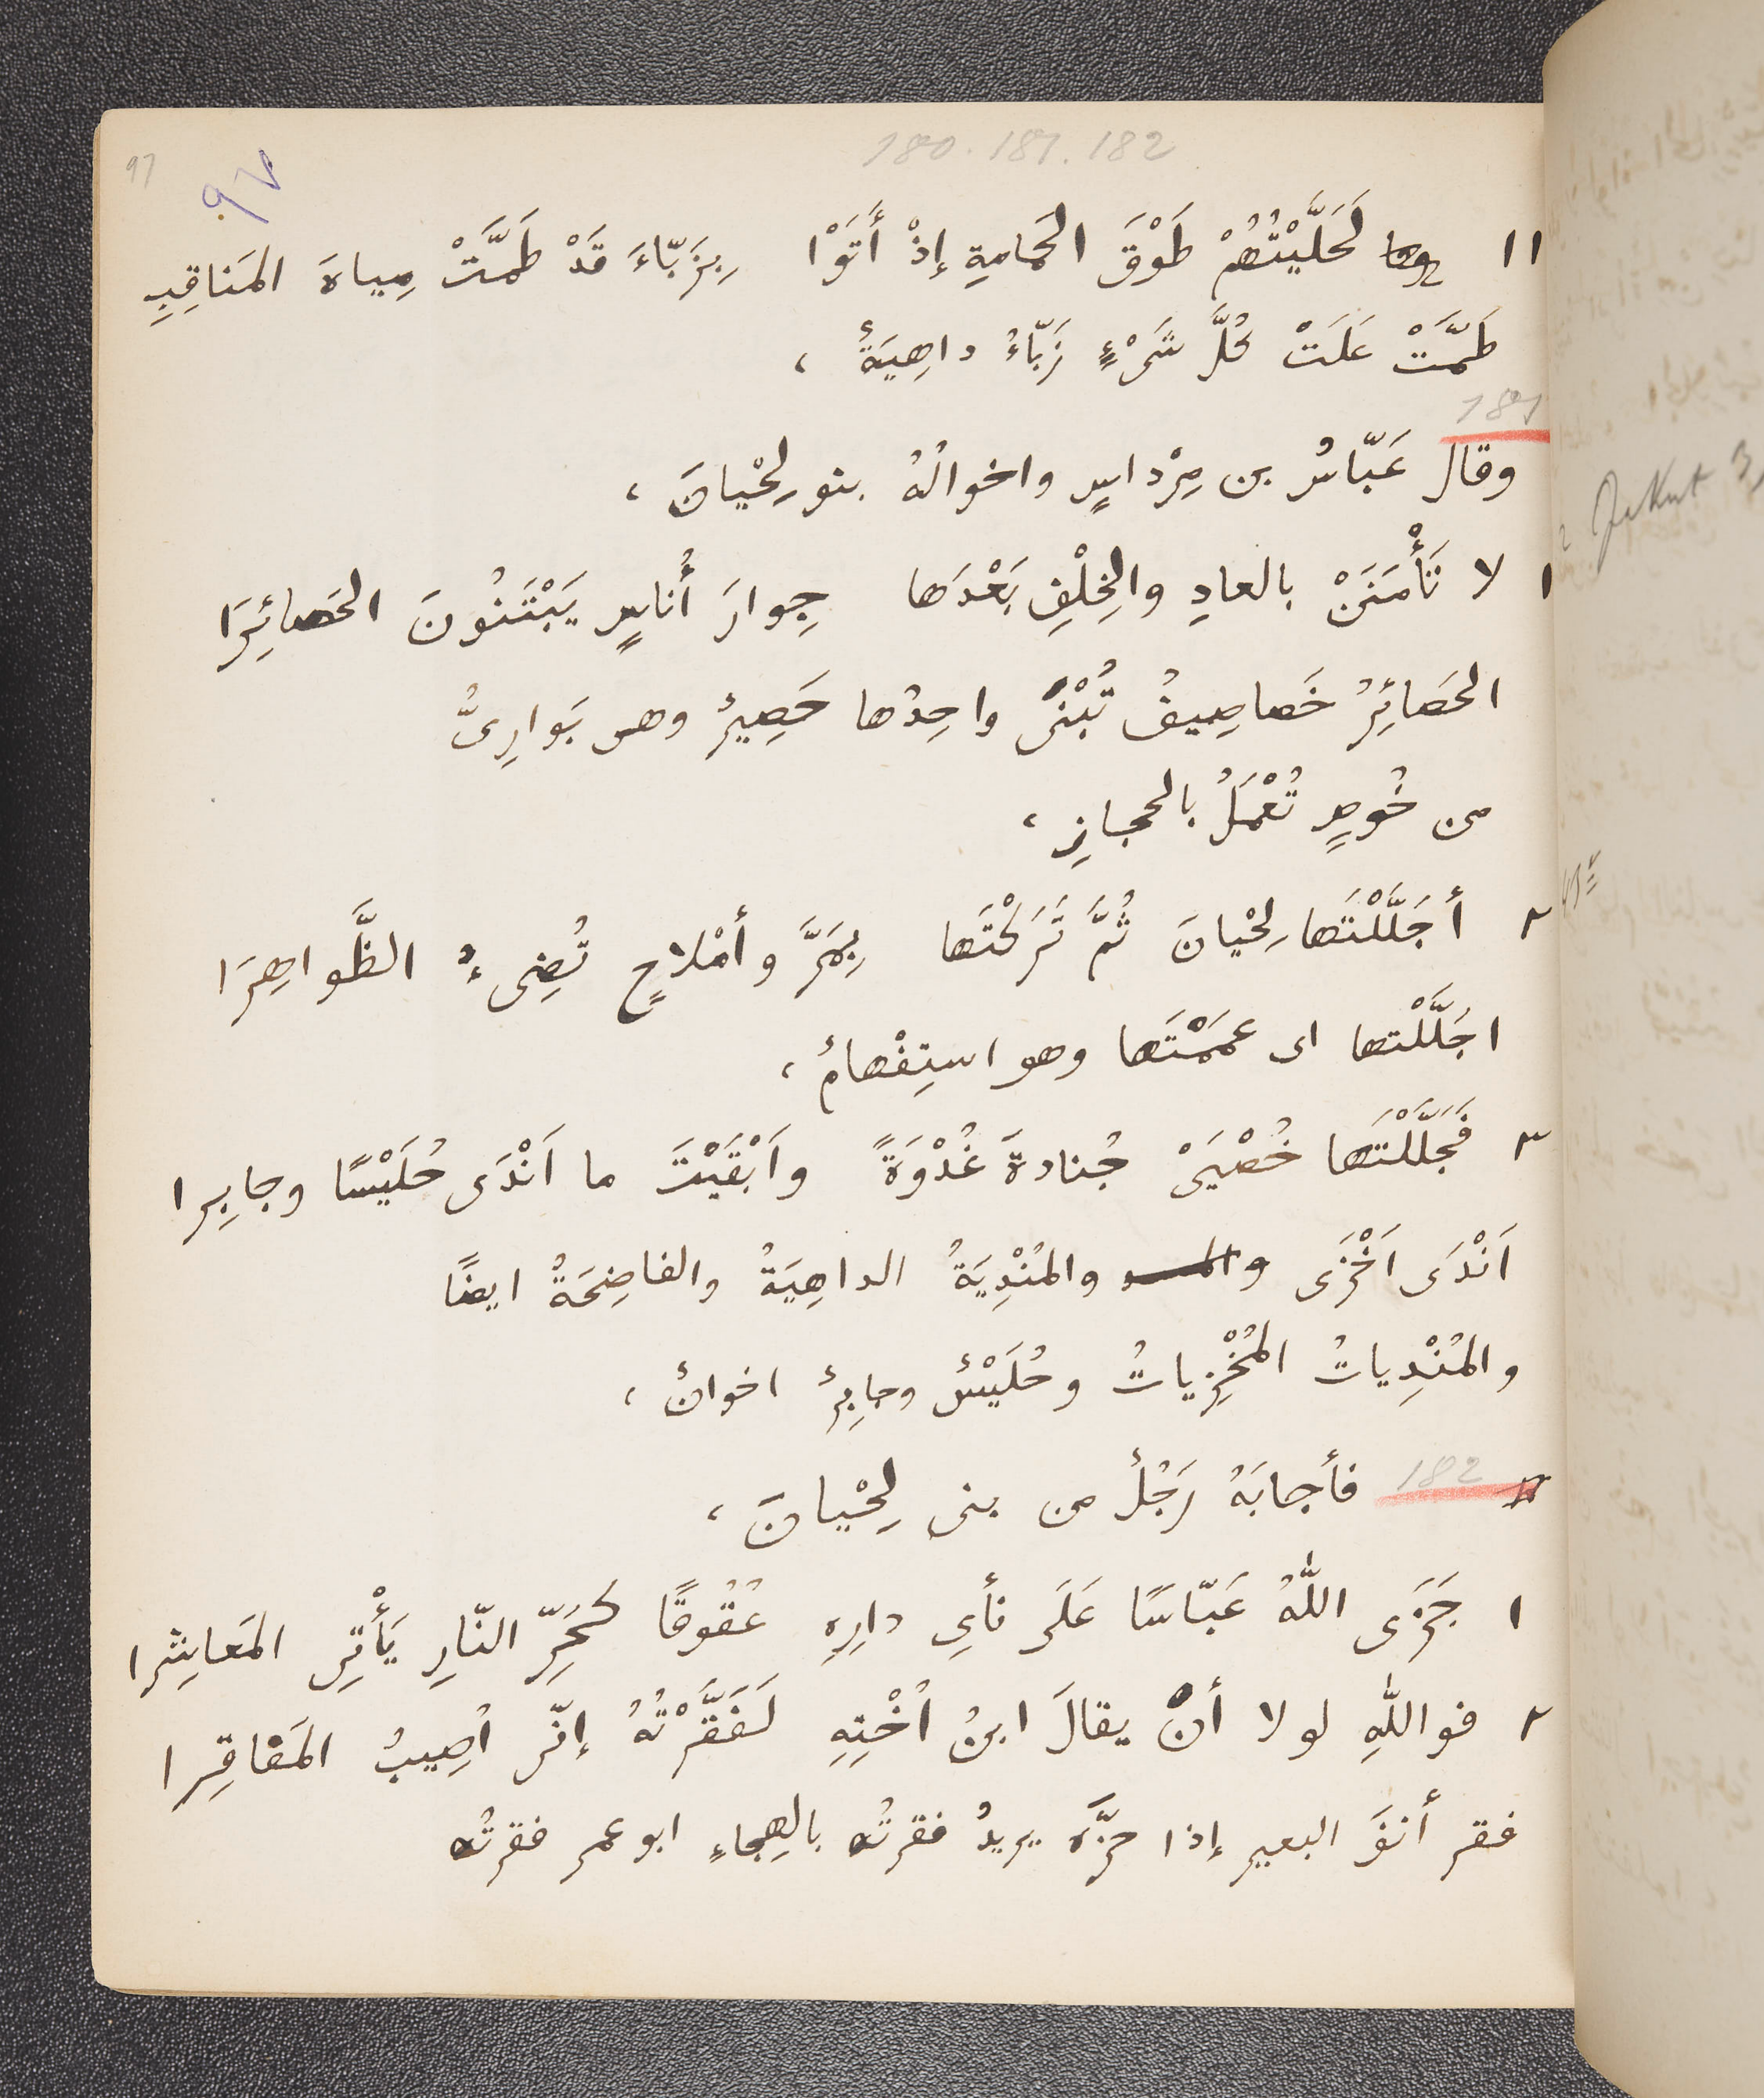 180. 181. 182
97
٩٧
١١ لَحَلَّيْتُهُمْ طَوْقَ الحَمامةِ إذْ أَتَوْا بِزَبّاءَ قَدْ طَمَّتْ مِياهَ المَناقِبِ
طَمَّتْ عَلَتْ كُلَّ شَىْءٍ زَبّاءُ داهِيَةٌ ،
181
وقال عَبّاسُ بن مِرْداسٍ واخوالُهُ بنو لِحْيانَ ،
١ لا تَأْمَنَنْ بالعادِ والخِلْفِ بَعْدَها جِوارَ أُناسٍ يَبْتَنُونَ الحَصائِرَا
الحَصائِرُ خَصاصِيفُ تُبْنَى واحِدُها حَصِيرٌ وهى بَوارِىُّ
من خُوصٍ تُعْمَلُ بالحجازِ ،
٢ أجَلَّلْتَها لِحْيانَ ثُمَّ تَرَكْتَها بِمَرَّ وأمْلاحٍ تُضِىءُ الظَّواهِرَا
اجَلَّلْتها اى عَمَمْتَها وهو استِفْهامٌ ،
٣ فَجَلَّلْتَها خُصْيَىْ جُنادةَ غُدْوَةً وَاَبْقَيْتَ ما اَنْدَى حُلَيْسًا وجابِرا
اَنْدَى اَخْزَى والمُنْدِيَةُ الداهِيَةُ والفاضِحَةُ ايضًا
والمُنْدِياتُ المُخْزِياتُ وحُلَيْسٌ وجابِرٌ اخوانٌ ،
182 فأجابَهُ رَجُلٌ من بنى لِحْيانَ ،
١ جَزَى اللّٰهُ عَبّاسًا عَلَى نأىِ دارِهِ عُقُوقًا كَحَرِّ النّارِ يَأْتِى المَعاشِرا
٢ فواللّٰهِ لولا أنْ يقالَ ابنُ اُخْتِهِ لَفَقَّرْتُهُ إنّى اُصِيبُ المَفاقِرا
فقر أنفَ البعير إذا حزَّه يريدُ فقرتُه بالهِجاءِ ابو عمر فقرتُه
Jakut 3,